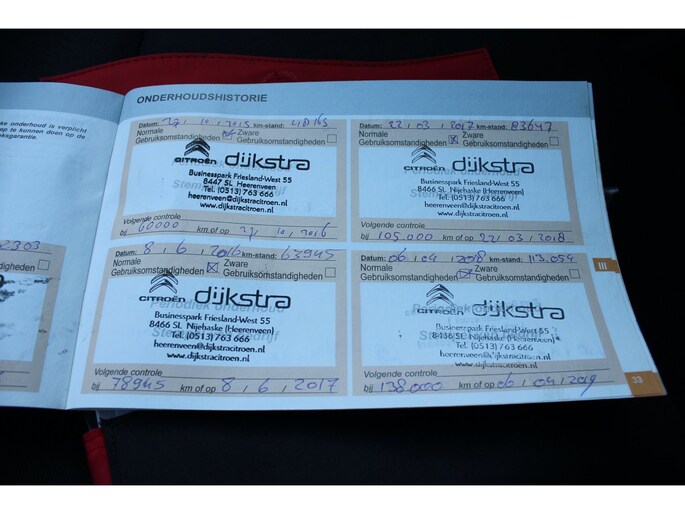 ke onderhoud is verplicht
op te kunnen doen op de
ksgarantie.
2303
ONDERHOUDSHISTORIE
Datum: 22, 10, 2015 km-stand: 48163
Normale Zware
Gebruiksomstandigheden Gebruiksomstandigheden
CITROËN dijkstra
Businesspark Friesland-West 55
8447 SL Heerenveen
Tel. (0513) 763 666
heerenveen@dijkstracitroen.nl
www.dijkstracitroen.nl
Volgende controle
bij 60000 km of op 22, 10, 2016
Datum: 8, 6, 2016 km-stand: 63945
Normale Zware
Gebruiksomstandigheden Gebruiksomstandigheden
Periodiek onderhoud
CITROËN dijkstra
Businesspark Friesland-West 55
8466 SL Nijehaske (Heerenveen)
Tel. (0513) 763 666
heerenveen@dijkstracitroen.nl
www.dijkstracitroen.nl
Volgende controle
bij 78945 km of op 8, 6, 2017
Datum: 22, 03, 2017 km-stand: 83647
Normale Zware
Gebruiksomstandigheden Gebruiksomstandigheden
CITROËN dijkstra
Businesspark Friesland-West 55
8466 SL Nijehaske (Heerenveen)
Tel. (0513) 763 666
heerenveen@dijkstracitroen.nl
www.dijkstracitroen.nl
Volgende controle
bij 105.000 km of op 22, 03, 2018
Datum: 06, 04, 2018 km-stand: 113.054
Normale Zware
Gebruiksomstandigheden Gebruiksomstandigheden
CITROËN dijkstra
Businesspark Friesland-West 55
8466 SL Nijehaske (Heerenveen)
Tel. (0513) 763 666
heerenveen@dijkstracitroen.nl
www.dijkstracitroen.nl
Volgende controle
bij 138.000 km of op 06, 04, 2019
III
33